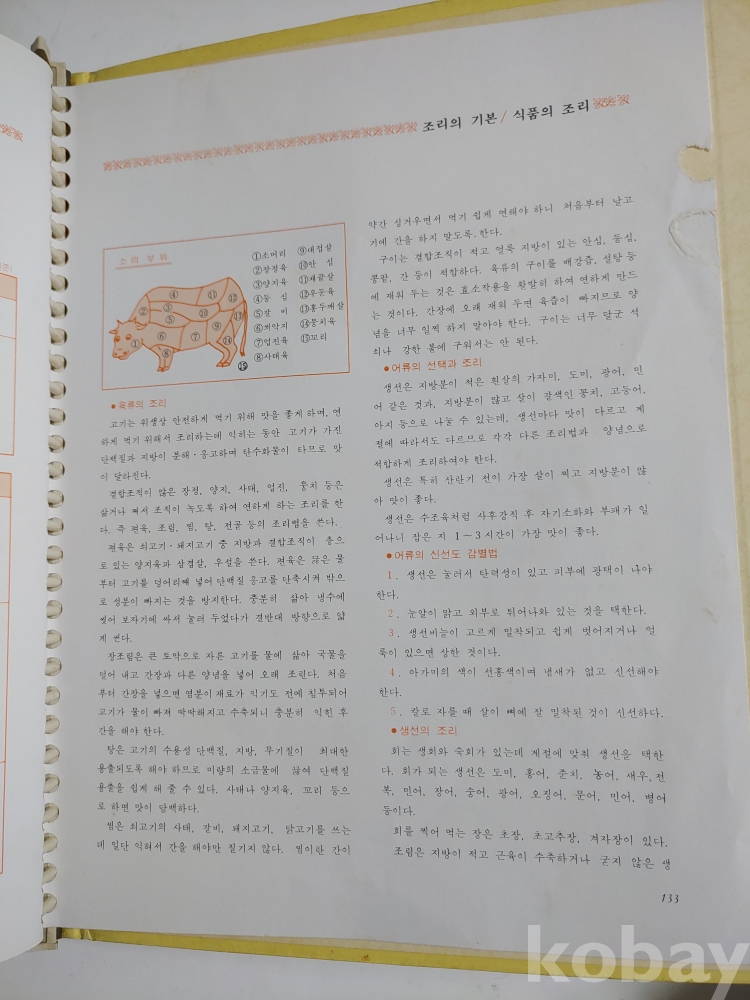 조리의 기본 / 식품의 조리
소의 부위
①소머리 ⑨대접살
②장정육 ⑩안 심
③양지육 ⑪채끝살
④등 심 ⑫우둔육
⑤갈 비 ⑬홍두깨살
⑥쇠악지 ⑭뭉치육
⑦업진육 ⑮꼬리
⑧사태육
●육류의 조리
고기는 위생상 안전하게 먹기 위해 맛을 좋게 하며, 연
하게 먹기 위해서 조리하는데 익히는 동안 고기가 가진
단백질과 지방이 분해·응고하며 탄수화물이 타므로 맛
이 달라진다.
결합조직이 많은 장정, 양지, 사태, 업진, 뭉치 등은
삶거나 쪄서 조직이 녹도록 하여 연하게 하는 조리를 한
다. 즉 편육, 조림, 찜, 탕, 전골 등의 조리법을 쓴다.
편육은 쇠고기·돼지고기 중 지방과 결합조직이 층으
로 있는 양지육과 삼겹살, 우설을 쓴다. 편육은 끓은 물
부터 고기를 덩어리째 넣어 단백질 응고를 단축시켜 밖으
로 성분이 빠지는 것을 방지한다. 충분히 삶아 냉수에
씻어 보자기에 싸서 눌러 두었다가 결반대 방향으로 얇
게 썬다.
장조림은 큰 토막으로 자른 고기를 물에 삶아 국물을
덜어 내고 간장과 다른 양념을 넣어 오래 조린다. 처음
부터 간장을 넣으면 염분이 재료가 익기도 전에 침투되어
고기가 물이 빠져 딱딱해지고 수축되니 충분히 익힌 후
간을 해야 한다.
탕은 고기의 수용성 단백질, 지방, 무기질이 최대한
용출되도록 해야 하므로 미량의 소금물에 끓여 단백질
용출을 쉽게 해 줄 수 있다. 사태나 양지육, 꼬리 등으
로 하면 맛이 담백하다.
찜은 쇠고기의 사태, 갈비, 돼지고기, 닭고기를 쓰는
데 일단 익혀서 간을 해야만 질기지 않다. 찜이란 간이
약간 싱거우면서 먹기 쉽게 연해야 하니 처음부터 날고
기에 간을 하지 말도록 한다.
구이는 결합조직이 적고 얼룩 지방이 있는 안심, 등심,
콩팥, 간 등이 적합하다. 육류의 구이를 배강즙, 설탕 등
에 재워 두는 것은 효소작용을 활발히 하여 연하게 만드
는 것이다. 간장에 오래 재워 두면 육즙이 빠지므로 양
념을 너무 일찍 하지 말아야 한다. 구이는 너무 달군 석
쇠나 강한 불에 구워서는 안 된다.
●어류의 선택과 조리
생선은 지방분이 적은 흰살의 가자미, 도미, 광어, 민
어 같은 것과, 지방분이 많고 살이 갈색인 꽁치, 고등어,
아지 등으로 나눌 수 있는데, 생선마다 맛이 다르고 계
절에 따라서도 다르므로 각각 다른 조리법과 양념으로
적합하게 조리하여야 한다.
생선은 특히 산란기 전이 가장 살이 찌고 지방분이 많
아 맛이 좋다.
생선은 수조육처럼 사후강직 후 자기소화와 부패가 일
어나니 잡은 지 1~3시간이 가장 맛이 좋다.
●어류의 신선도 감별법
1. 생선은 눌러서 탄력성이 있고 피부에 광택이 나야
한다.
2. 눈알이 맑고 외부로 튀어나와 있는 것을 택한다.
3. 생선비늘이 고르게 밀착되고 쉽게 벗어지거나 얼
룩이 있으면 상한 것이다.
4. 아가미의 색이 선홍색이며 냄새가 없고 신선해야
한다.
5. 칼로 자를 때 살이 뼈에 잘 밀착된 것이 신선하다.
●생선의 조리
회는 생회와 숙회가 있는데 계절에 맞춰 생선을 택한
다. 회가 되는 생선은 도미, 홍어, 준치, 농어, 새우, 전
복, 민어, 장어, 숭어, 광어, 오징어, 문어, 민어, 병어
등이다.
회를 찍어 먹는 장은 초장, 초고추장, 겨자장이 있다.
조림은 지방이 적고 근육이 수축하거나 굳지 않은 생
133
kobay